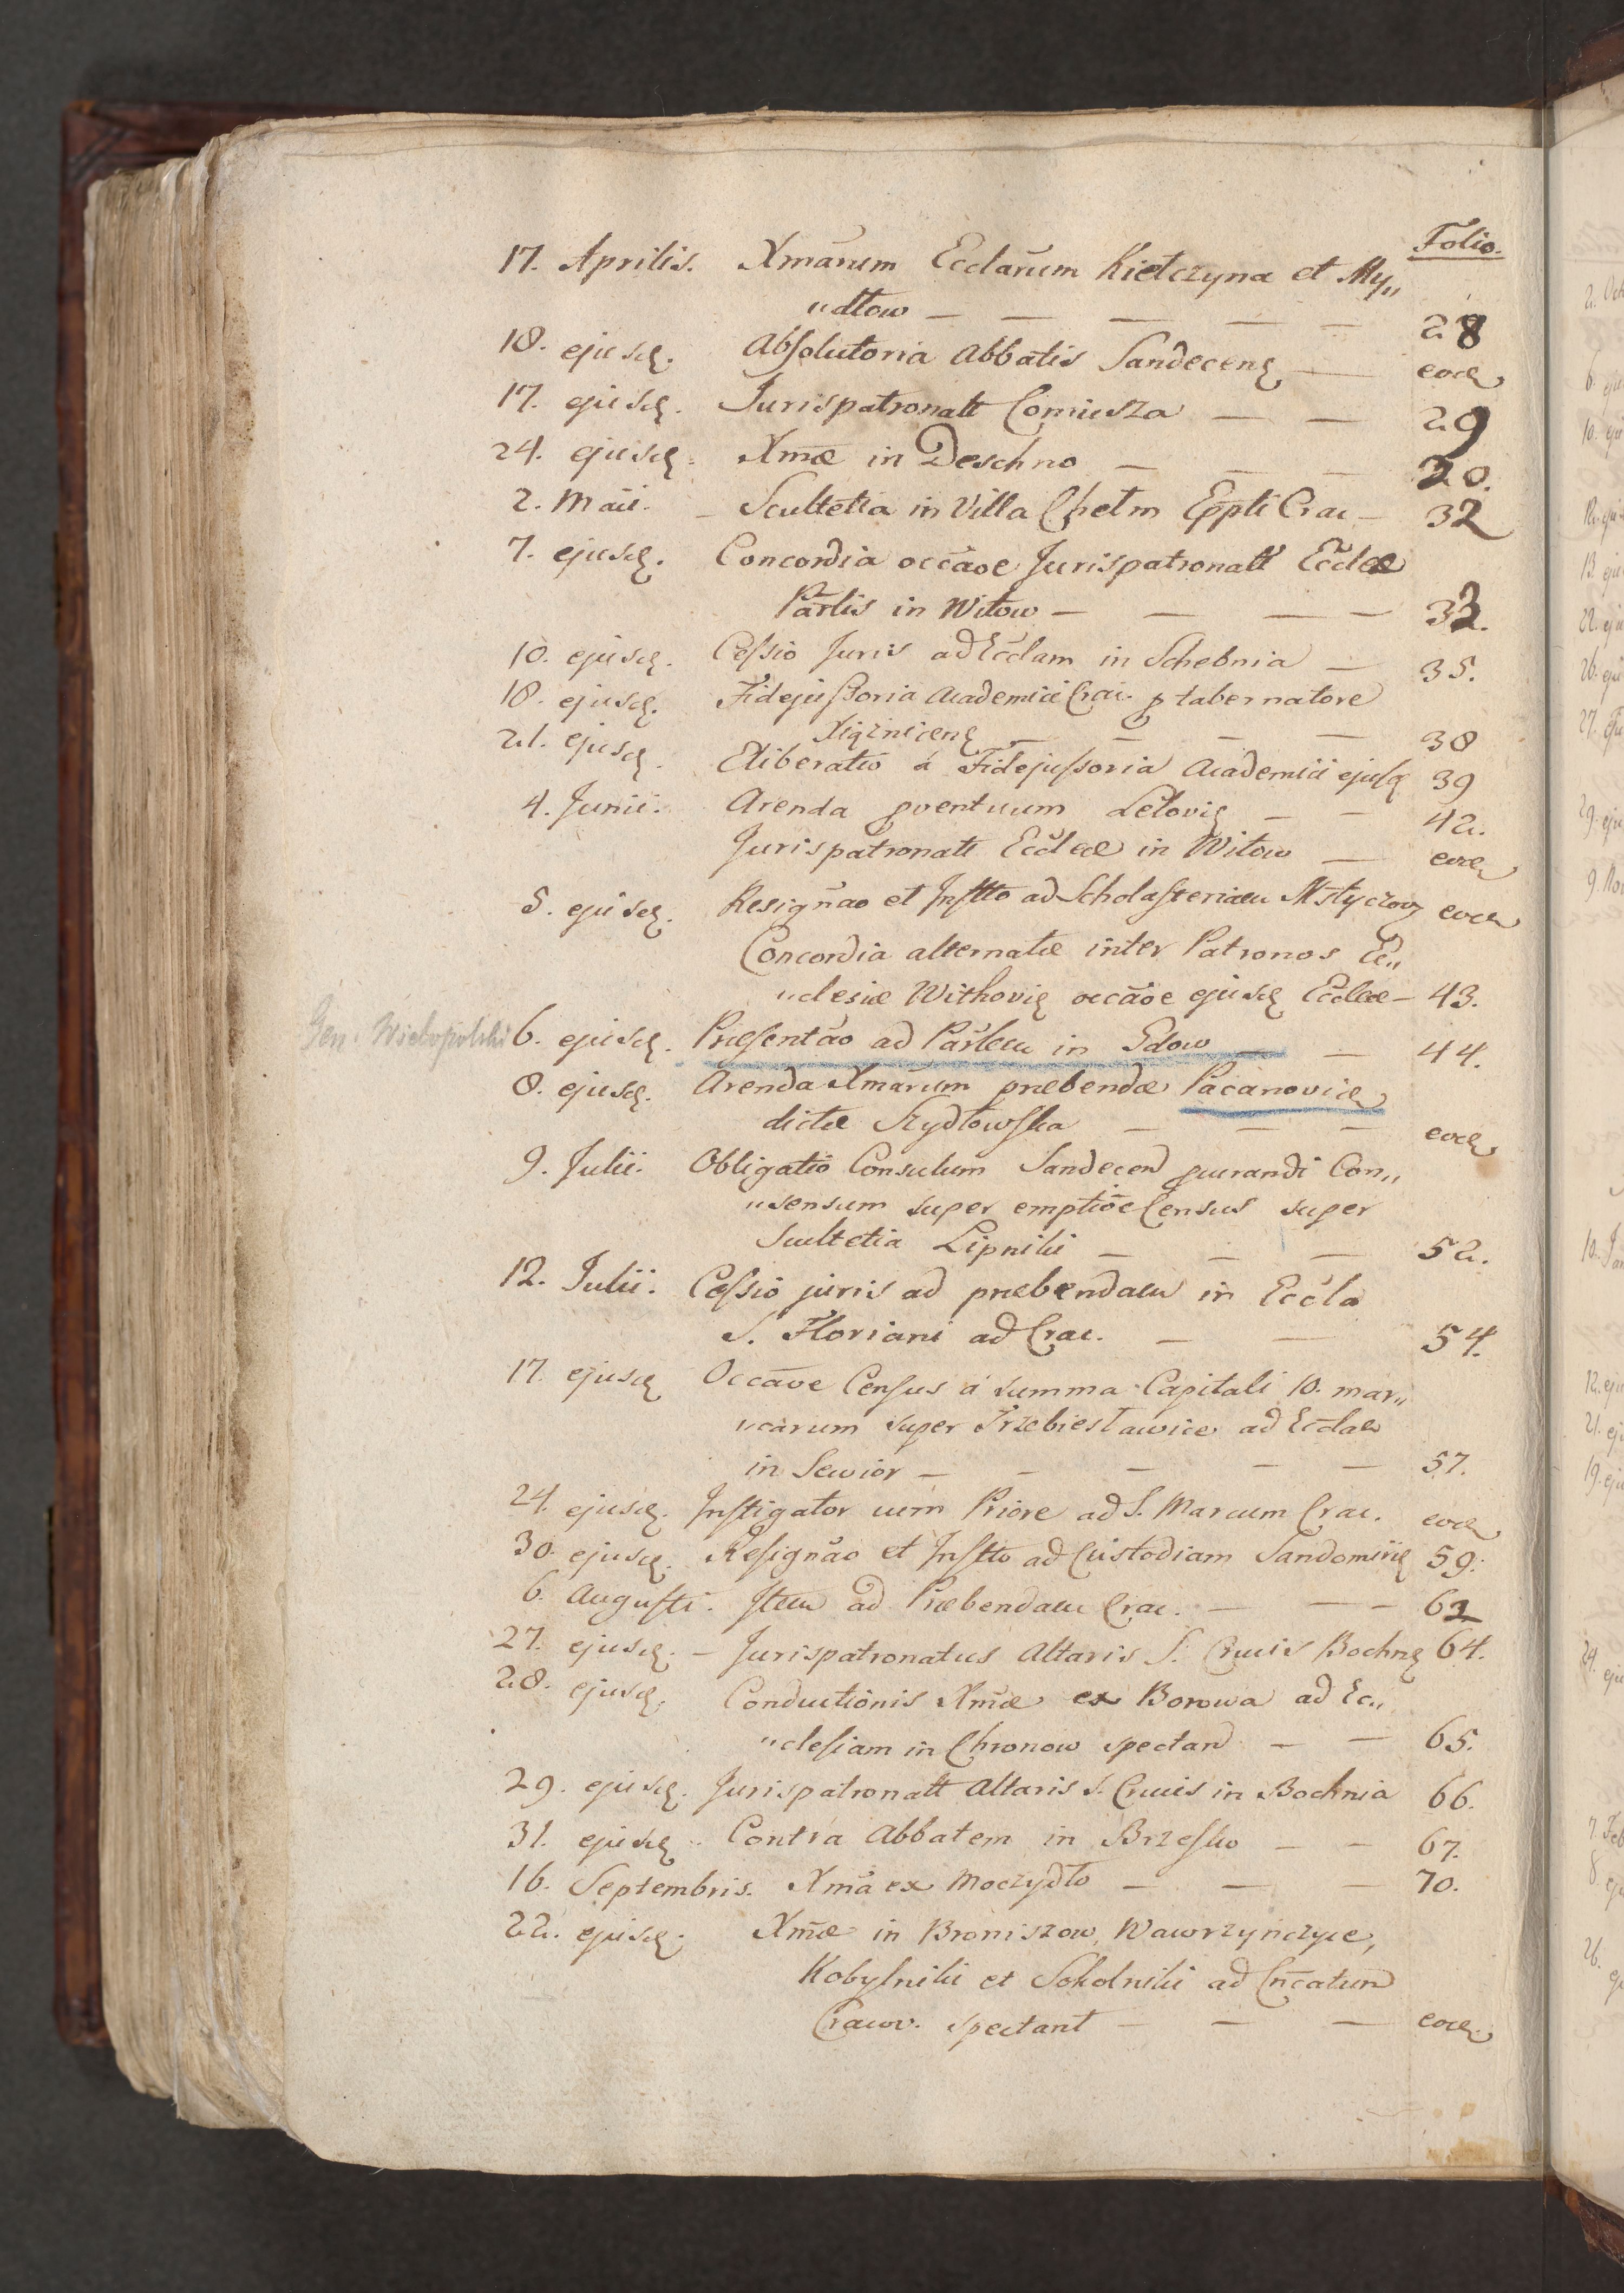 Folio.
17. Aprilis. Xmãrum Ecclãrum Kietczyna et My„
„dłow — — — — — 28
18. ejusd. Absolutoria Abbatis Sandecens — eod
17. ejusd. Jurispatronatt Coniusza — — 29
24. ejusd. Xmæ in Deschno — — — 30.
2. Maii. — Scultetia in Villa Chełm Epptt Crac — 32
7. ejusd. Concordia occãoe Jurispatronatt Ecclæ
Parlis in Witow — — — — 33.
10. ejusd. Cessio Juris ad Ecclam in Schebnia — 35.
18. ejusd. Fidejussoria Academici Crac. p tabernatore
— — — 38
21. ejusd. Eliberatio á Fidejussoria Academici ejusd 39
4. Junii. Arenda pventuum Letovis — — 42.
Jurispatronatt Ecclæ in Witow — eod
5. ejusd. Resignão et Instto ad Scholasteriam Msłyczow eod
Concordia alternatæ inter Patronos Ec„
„clesiæ Withovis occãoe ejusd Ecclæ — 43.
Gen. Wielopolski 6. ejusd. Præsentão ad Parlem in Gdow — — 44.
8. ejusd. Arenda Xmãrum præbendæ Pacanoviæ
dictæ Szydłowska — — — eod
9. Julii. Obligatio Consulum Sandecen pcurandi Con„
„sensum super emptiõe Census super
Scultetia Lipniki — — — 52.
12. Julii. Cessio juris ad præbendam in Eccla
S. Floriani ad Crac. — — 54.
17. ejusd Occãoe Census á summa Capitali 10. mar„
„carum super Trzebiesławice ad Ecclam
in Sewior — — — — — 57.
24. ejusd. Instigator cum Priore ad S. Marcum Crac. eod
30. ejusd. Resignão et Instto ad Custodiam Sandomiris 59.
6. Augusti. Item ad Præbendam Crac. — — — 62
27. ejusd. — Jurispatronatus Altaris S. Crucis Bochns 64.
28. ejusd. Conductionis Xmæ ex Borowa ad Ec„
„clesiam in Chronow spectan — — 65.
29. ejusd. Jurispatronatt Altaris S. Crucis in Bochnia 66.
31. ejusd. Contra Abbatem in Brzesko — — 67.
16. Septembris. Xmã ex Moczydło — — — 70.
22. ejusd. Xmæ in Broniszow, Wawrzyńczyce,
Kobylniki et Sokolniki ad Cñcatum
Cracov. spectant — — — eod